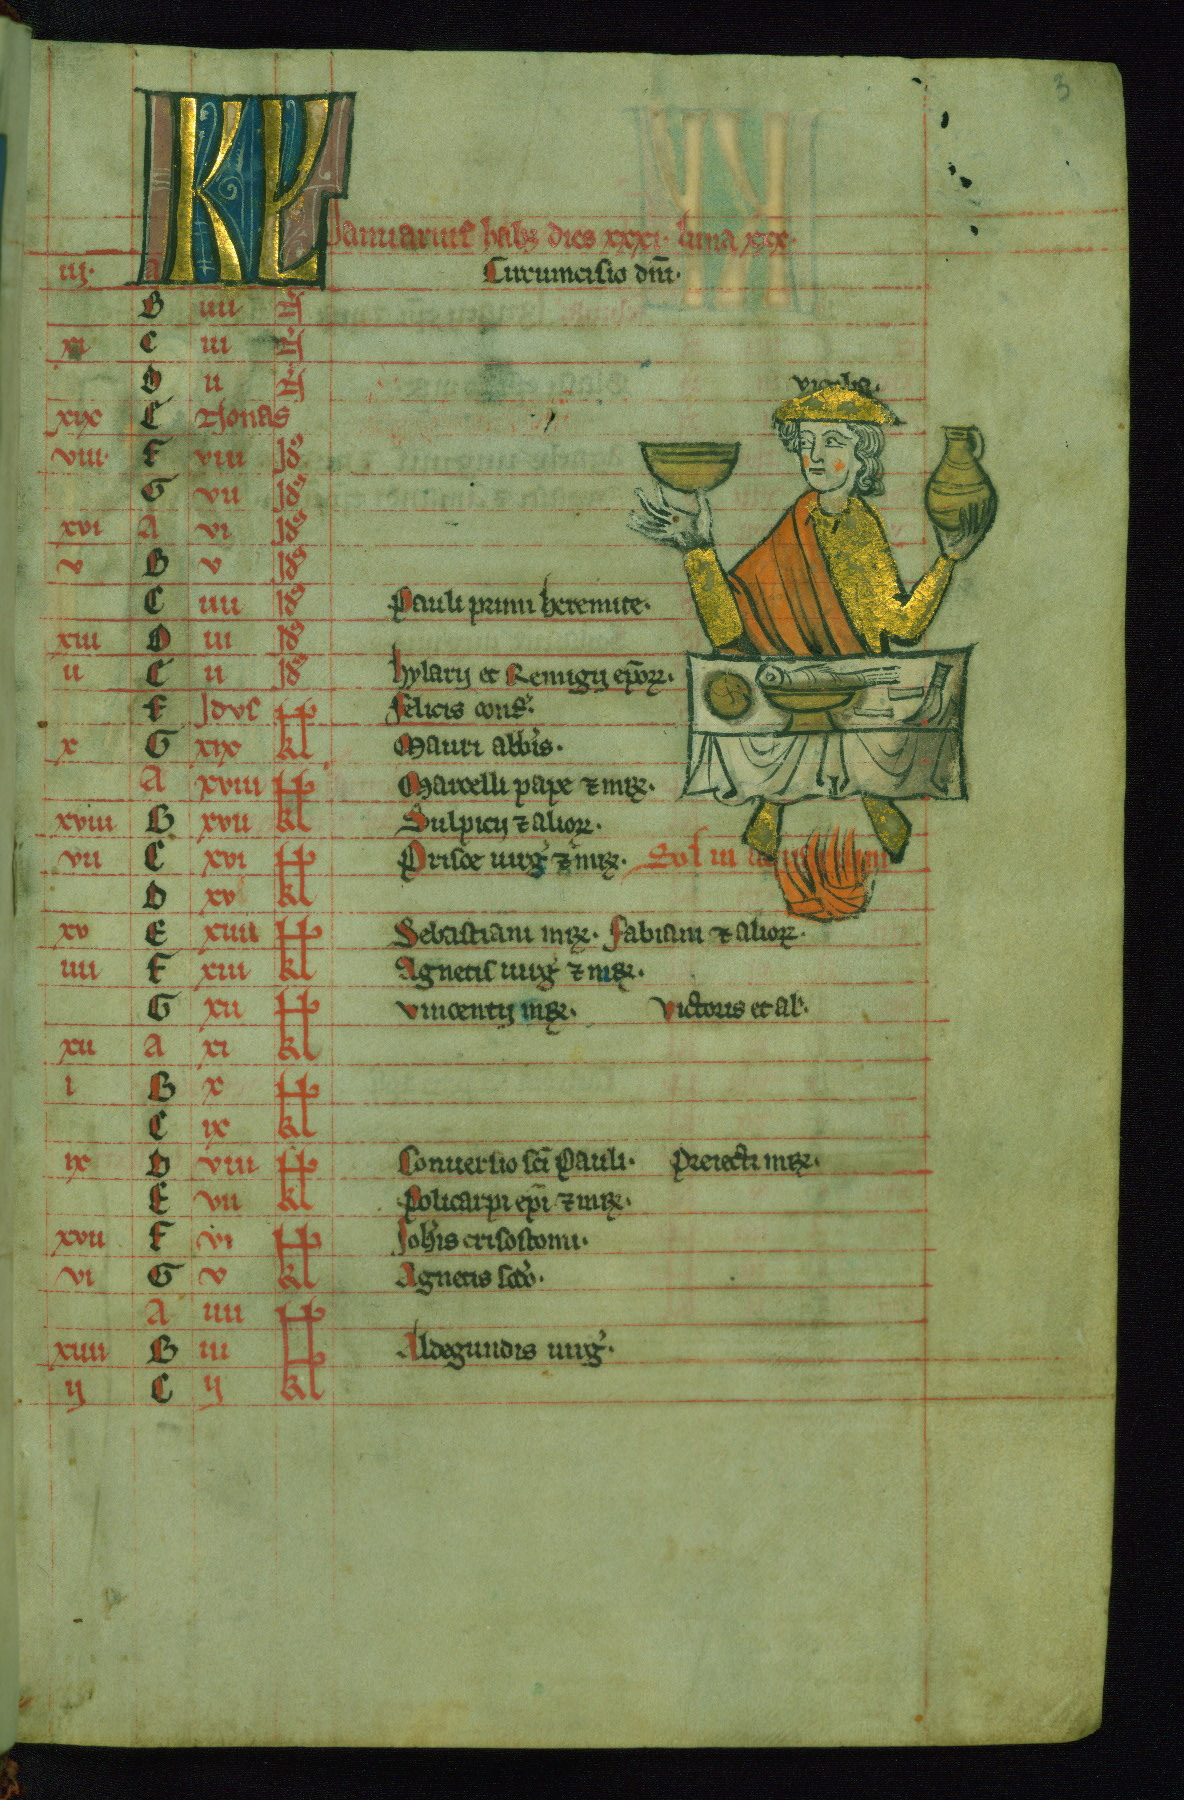 3
KL Januarius habꝫ dies xxxi· luna xxx·
iii· a Circumcisio dn̄i·
B iiii N̄
xi C iii N̄
D ii N̄
xix E Nonas
viii· F viii Id᷒
G vii Id᷒
xvi A vi Id᷒
v B v Id᷒
C iiii Id᷒ Pauli primi heremite·
xiii D iii Id᷒
ii E ii Id᷒ hylarij et Remigij ep̄oꝝ·
F Idus felicis conf̾·
x G xix kl Mauri abb̾is·
A xviii kl Marcelli pape ⁊ mr̄is·
xviii B xvii kl Sulpicij ⁊ alioꝝ·
vii C xvi kl Prisce uirg̾ ⁊ mr̄is· Sol in
D xv kl
xv E xiiii kl Sebastiani mr̄is· fabiani ⁊ alioꝝ·
iiii F xiii kl Agnetis uirg̾ ⁊ mr̄is·
G xii kl vincentij mr̄is· victoris et al̾·
xii A xi kl
i B x kl
C ix kl
ix D viii kl Conuersio sc̄i Pauli· Preiecti mr̄is·
E vii kl Policarpi ep̄i ⁊ mr̄is·
xvii F vi kl Joh̾is crisostomi·
vi G v kl Agnetis sc̄do·
A iiii kl
xiiii B iii kl Aldegundis uirg̾·
ij C ij kl